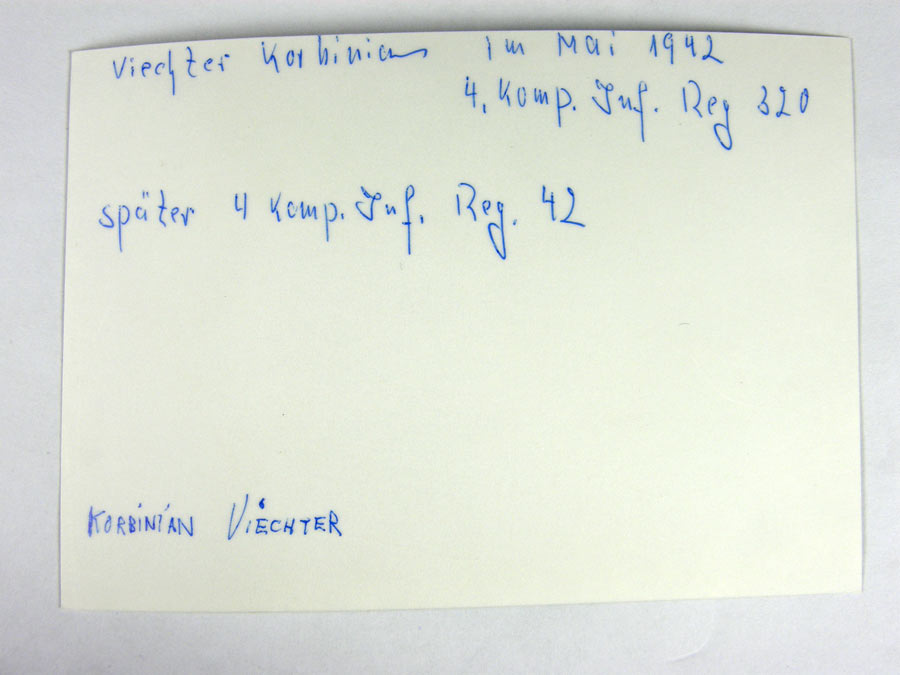 Viechter Korbinian im Mai 1942
4. Komp. Inf. Reg 320
später 4 Komp. Inf. Reg. 42
KORBINIAN VIECHTER